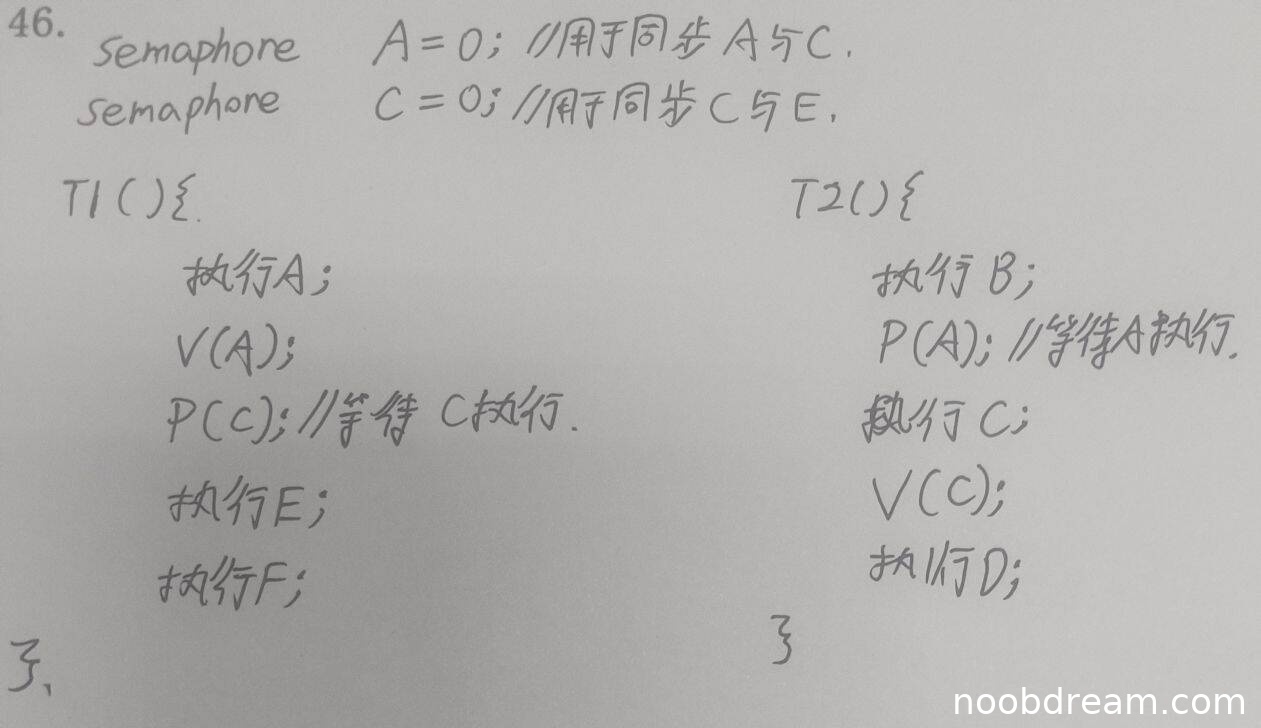 46.
semaphore A=0; //用于同步A与C.
semaphore C=0; //用于同步C与E.
T1(){.
执行A;
V(A);
P(C); //等待C执行.
执行E;
执行F;
}、
T2(){
执行B;
P(A); //等待A执行.
执行C;
V(C);
执行D;
}
noobdream.com